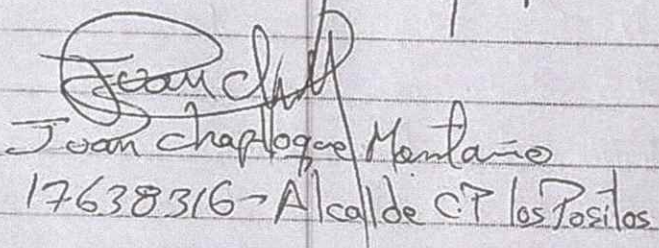 Juan Chaploque Montaño
17638316-Alcalde CP los Positos